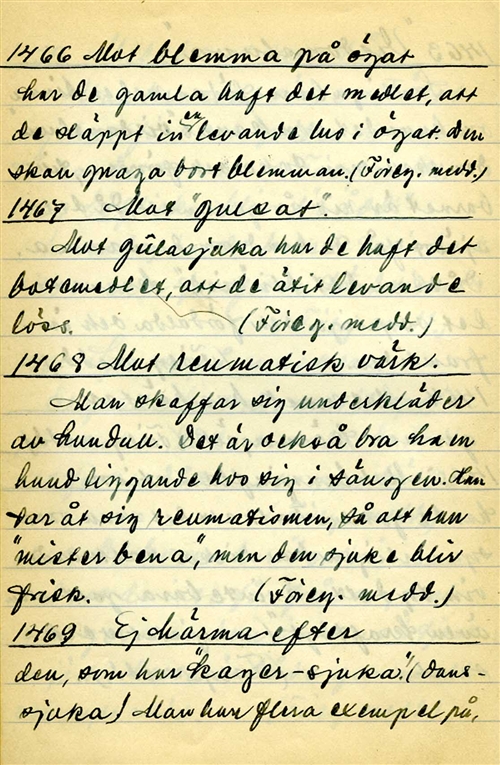 1466 Mot blemma på ögat
har de gamla haft det medlet, att
de släppt in en levande lus i ögat. Den
skall gnaga bort blemman. (Föreg. medd.)
1467 Mot "gulsot".
Mot gûlasjuka har de haft det
botemedlet, att de ätit levande
löss. (Föreg. medd.)
1468 Mot reumatisk värk.
Man skaffar sig underkläder
av hundull. Det är också bra ha en
hund liggande hos sig i sängen. Han
tar åt sig reumatismen, så att han
"mister bena", men den sjuke blir
frisk. (Föreg. medd.)
1469 Ej härma efter
den, som har "kager-sjuka". (dans-
sjuka) Man har flera exempel på,